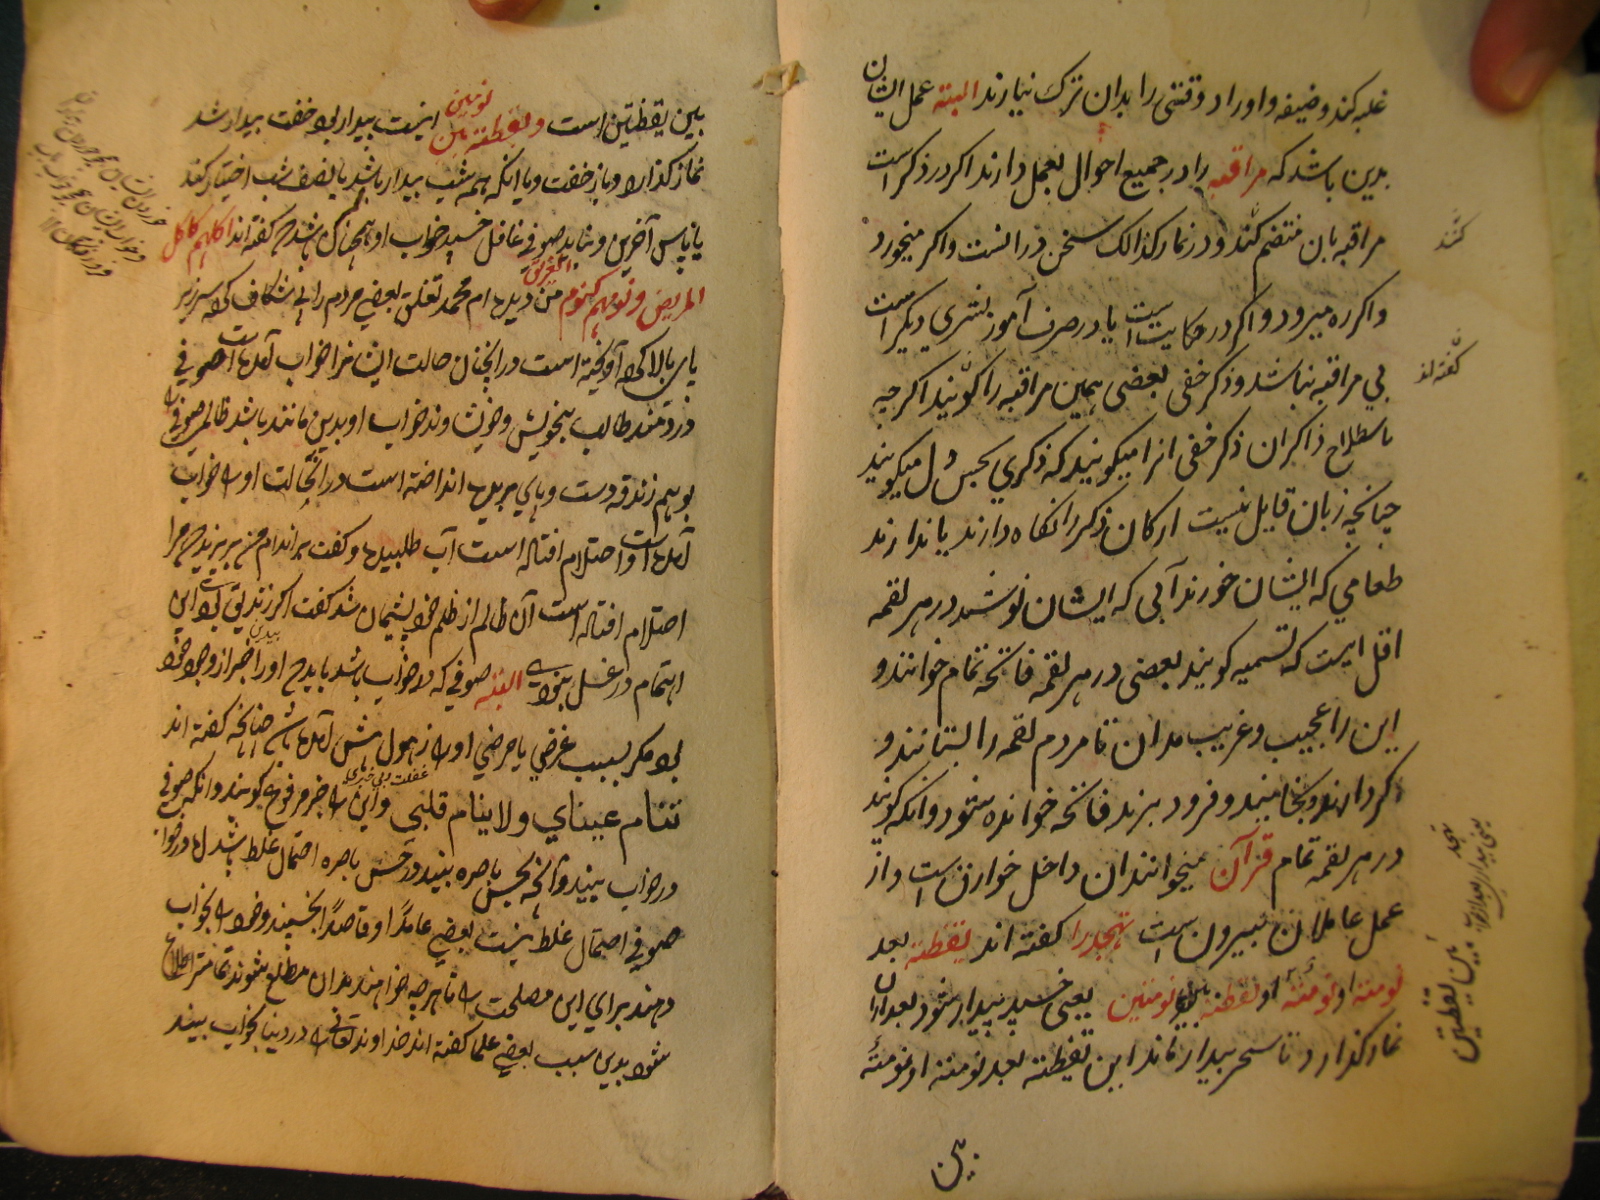 غلبه کند وضیفه و اوراد وقتی را بدان ترک نیارند البته عمل ایشان
بدین باشد که مراقبه را در جمیع احوال بعمل دارند اکر در ذکر است
مراقبه بان منتضم کنند و در نماز کذالک سخن در است و اکر میخورد
و اکر ره میرود و اکر در حکایت است یا در صرف آموز بشری دیکر است
بی مراقبه نباشد و ذکر خفی بعضی همین مراقبه را کویند اکر چه
باصطلاح ذاکران ذکر خفی انرا میکویند که ذکری بحبس دل میکویند
چنانچه زبان قایل نیست ارکان ذکر را نکاه دارند یا ندارند
طعامی که ایشان خورند آبی که ایشان نوشند در هر لقمه
اقل اینست که تسمیه کویند بعضی در هر لقمه فاتحه تمام خوانند و
این را عجیب و غریب مدان تا مردم لقمه را بستانند و
کرد دهند و بخایند و فرود برند فاتحه خوانده شود و انکه کویند
در هر لقمه تمام قرآن میخوانند ان داخل خوارق است و از
عمل عاملان بیرون است تهجد را کفته اند یقظته بعد
نومته او نومته او یقظته بین نومتین یعنی خسپد بیدار شود بعد ازان
نماز کذارد تا سحر بیدار ماند این یقظته بعد نومته او نومته
بین
کنند
کفته اند
تهجد
یعنی بیدار
بین یقظتین
بین یقظتین است و یقظته بین نومین اینست بیدار بود خفت بیدار شد
نماز کذارد و باز خفت و یا انکه همه شب بیدار باشد یا نصف شب اختیار کند
یا پاس آخرین و شاید صوفی غافل خسپد خواب او همچنان باشد که کفته اند اکلهم کاکل
المریض و نومهم کنوم الغریق من دیده ام محمد تغلق بعضی مردم را شکاف کرد سر زیر
پای بالا کرد آویخته است در انچنان حالت ایشانرا خواب آمده است صوفی
دردمند طالب بیخویش و خویشاوند خواب او بدین مانند باشد ظالم صوفی را
بوهم زندقه دست و پای بریده انداخته است در انحالت او را خواب
آمده است و احتلام افتاده است آب طلبیده و کفت بر اندام من بریزید که مرا
احتلام افتاده است آن ظالم از ظلم خود پشیمان شد کفت اکر زندیق بودی این
اهتمام در غسل نبودی البته صوفی که در خواب باشد باید که اورا خبر از وجود خود
بود مکر بسبب غرضی یا مرضی اورا ذهول پیش آمده باشد چنانچه کفته اند
غفلت و بی خبری
تنام عیینای ولا ینام قلبی و این را خبر مرفوع کویند و انکه صوفی
در خواب بیند و آنچه بحس باصره بیند در حس باصره احتمال غلط باشد و در خواب
صوفی احتمال غلط نیست بعضی عامدًا و قاصدًا بخسپند و خود را بخواب
دهند برای این مصلحت را تا هرچه خواهند بدان مطلع شوند تمامتر اطلاع
شود بدین سبب بعضی علما کفته اند خداوند تعالی را در دنیا بخواب بیند